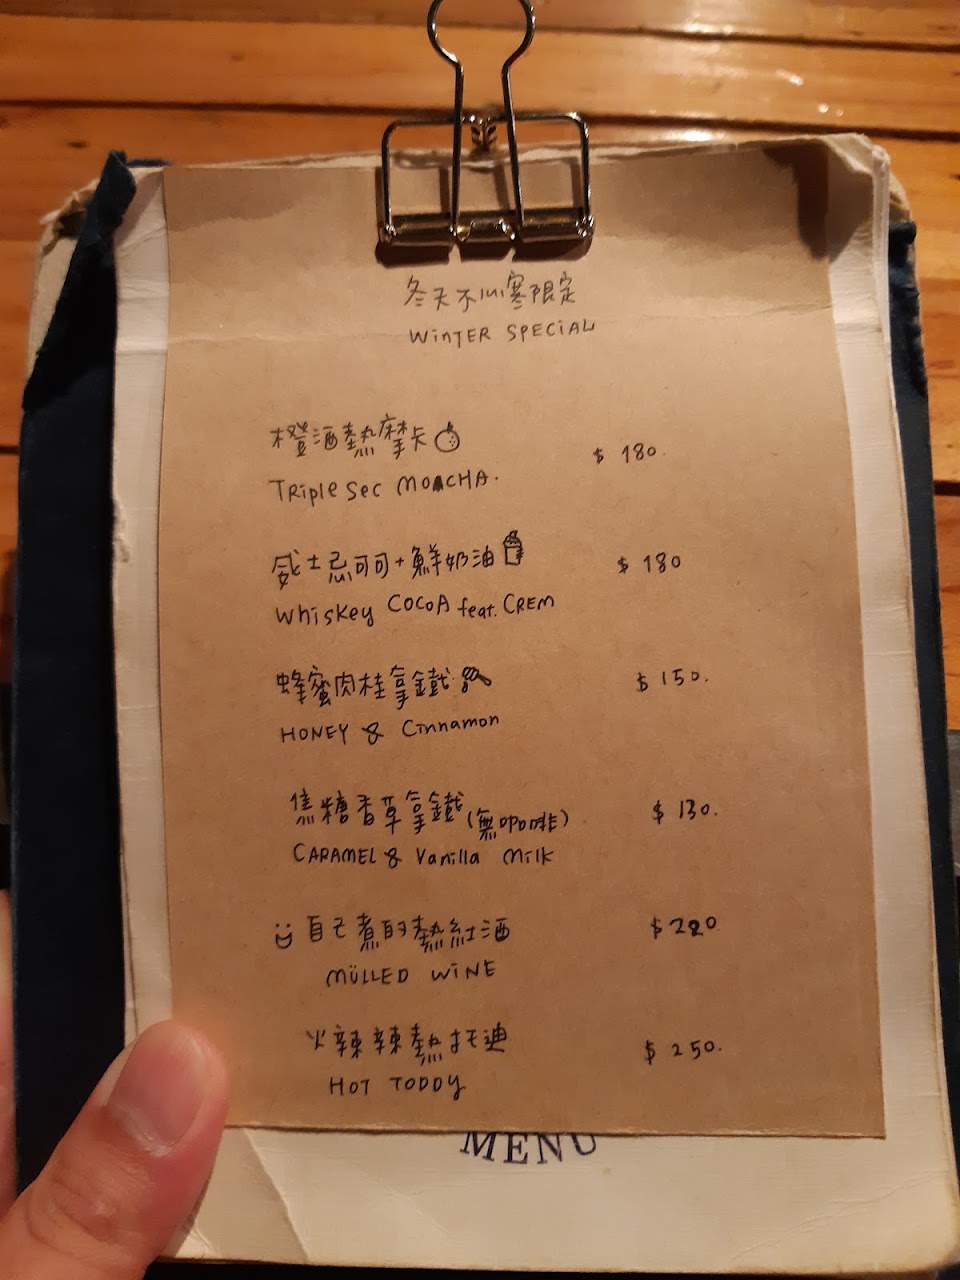 冬天不心寒限定
WinTER SPECiAL
橙酒熱摩卡
$ 180.
TRiple Sec MOCHA.
威士忌可可+鮮奶油
$ 180
Whiskey COCOA feat. CREM
蜂蜜肉桂拿鐵
$ 150.
HONEY & Cinnamon
焦糖香草拿鐵(無咖啡)
$ 130.
CARAMEL & Vanilla Milk
自己煮的熱紅酒
$220
MÜLLED WiNE
火辣辣熱托迪
$ 250.
HOT TODDY
MENU